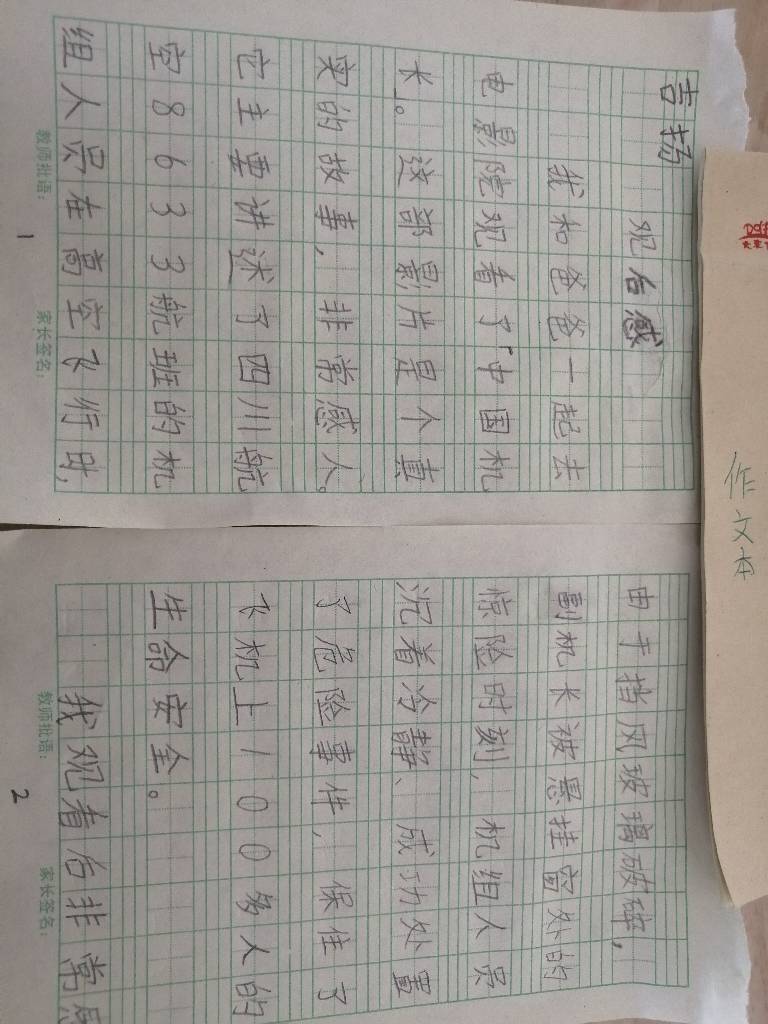 吉扬
观后感
我和爸爸一起去
电影院观看了“中国机
长”。这部影片是个真
实的故事,非常感人。
它主要讲述了四川航
空8633航班的机
组人员在高空飞行时,
教师批语: 家长签名:
1
由于挡风玻璃破碎,
副机长被悬挂窗外的
惊险时刻,机组人员
沉着冷静、成功处置
了危险事件,保住了
飞机上100多人的
生命安全。
我观看后非常感
教师批语: 家长签名:
2
作文本